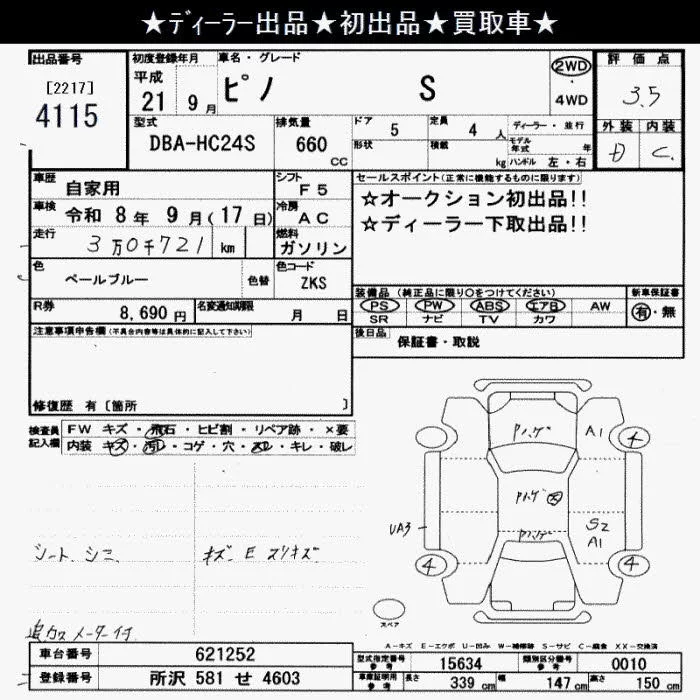 ★ディーラー出品★初出品★買取車★
出品番号
[2217]
4115
初度登録年月
平成
21 9月
車名・グレード
ピノ S
2WD
4WD
評価点
3.5
外装 内装
D C
型式
DBA-HC24S
排気量
660 CC
ドア 5
定員 4人
形状
積載 kg
ディーラー・並行
モデル年式 年
ハンドル 左・右
車歴 自家用
シフト F5
車検 令和 8年 9月(17日)
冷房 AC
走行 3万0千721 km
燃料 ガソリン
色 ペールブルー 色替
色コード ZKS
R券 8,690円
名変通知期限 月 日
セールスポイント(正常に機能するものに限ります)
☆オークション初出品!!
☆ディーラー下取出品!!
装備品(純正品に限り○をつけてください)
PS PW ABS エアB AW
SR ナビ TV カワ
新車保証書
有・無
後日品
保証書・取説
注意事項申告欄(不具合内容等は具体的に記入して下さい)
修復歴 有〔箇所 〕
検査員記入欄
FW キズ・飛石・ヒビ割・リペア跡・×要
内装 キズ・汚レ・コゲ・穴・スレ・キレ・破レ
シート シミ
キズ E スリキズ
追加メーター付
Pハゲ
A1
4
Pハゲ
UA3
S2
A1
Pハゲ
4
4
スペア
A-キズ E-エクボ U-凹み W-補修跡 S-サビ C-腐食 XX-交換済
車台番号 621252
登録番号 所沢 581 せ 4603
型式指定番号参考 15634
類別区分番号参考 0010
車庫証明用参考
長さ 339 cm
幅 147 cm
高さ 150 cm